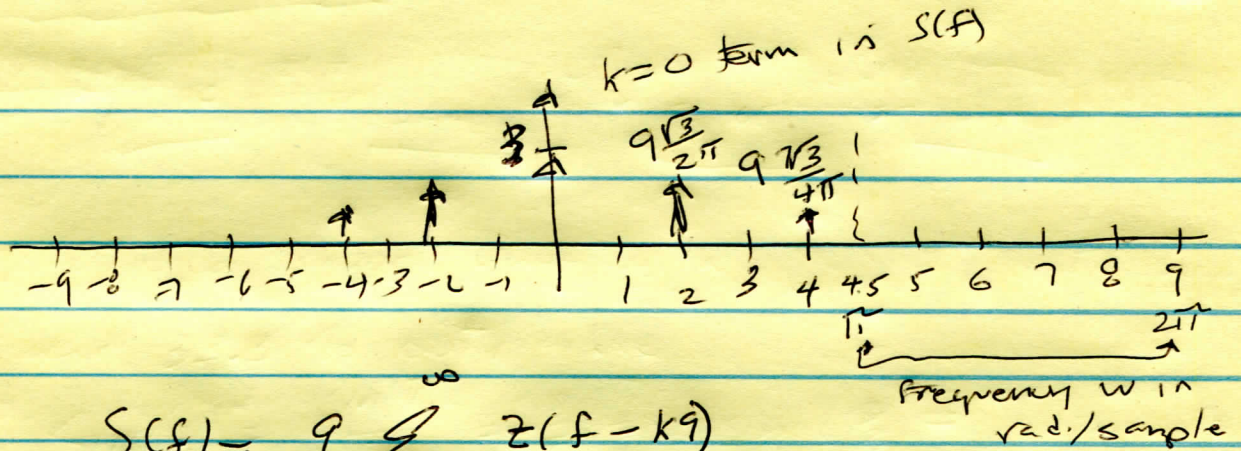 k=0 term in S(f)
3 9√3/2π 9√3/4π
-9 -8 -7 -6 -5 -4 -3 -2 -1 1 2 3 4 4.5 5 6 7 8 9
π 2π
frequency w in
rad./sample
∞
S(f)= 9 Σ z(f-k9)